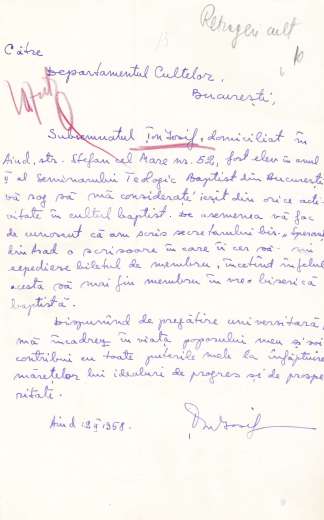 Retrageri cult
Către
Departamentul Cultelor,
București,
Subsemnatul Ton Iosif, domiciliat în
Aiud, str. Ștefan cel Mare nr. 52, fost elev în anul
II al Seminarului Teologic Baptist din București
vă rog să mă considerați ieșit din orice acti-
vitate în cultul baptist. De asemenea vă fac
de cunoscut că am scris secretarului bis. Speranța
din Arad o scrisoare în care îi cer să-mi
expedieze biletul de membru, încetînd în felul
acesta să mai fiu membru în vre-o biserică
baptistă.
Dispunînd de pregătire universitară,
mă încadrez în viața poporului meu și voi
contribui cu toate puterile mele la înfăptuirea
mărețelor lui idealuri de progres și de prospe-
ritate.
Aiud 1958.
Ton Iosif